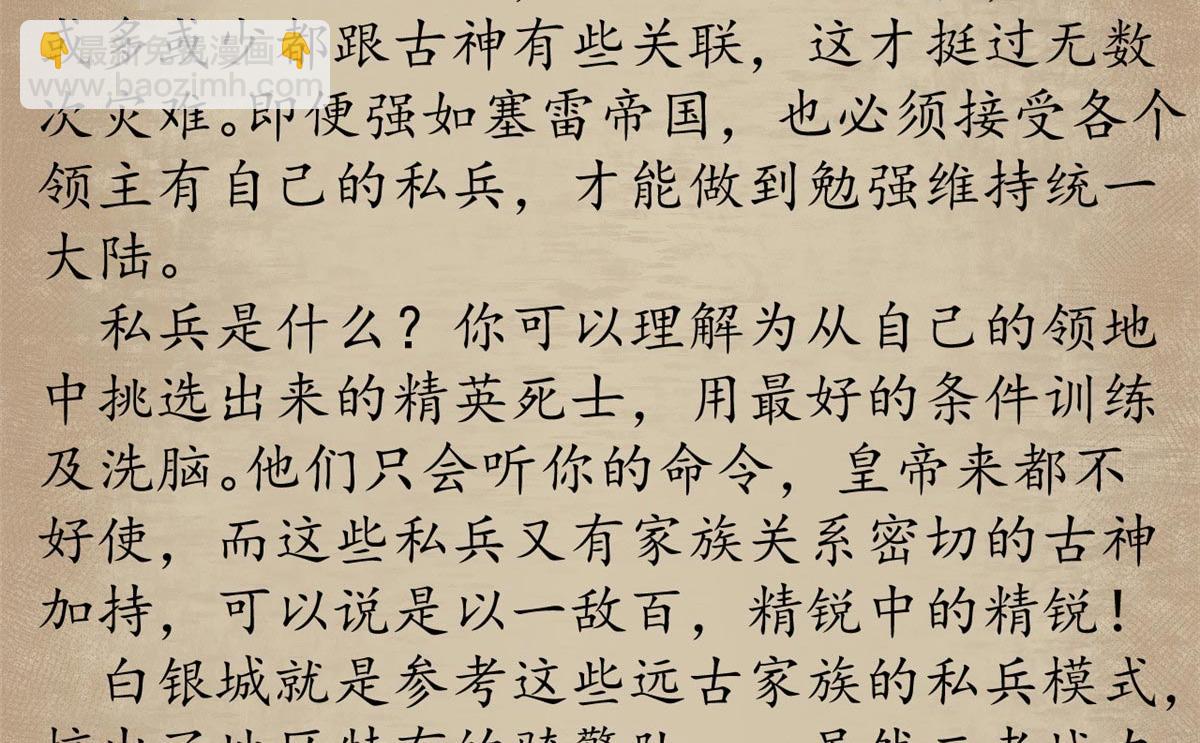 或多或少都跟古神有些关联，这才挺过无数
最新免费漫画
www.baozimh.com
次灾难。即便强如塞雷帝国，也必须接受各个
领主有自己的私兵，才能做到勉强维持统一
大陆。
私兵是什么？你可以理解为从自己的领地
中挑选出来的精英死士，用最好的条件训练
及洗脑。他们只会听你的命令，皇帝来都不
好使，而这些私兵又有家族关系密切的古神
加持，可以说是以一敌百，精锐中的精锐！
白银城就是参考这些远古家族的私兵模式，